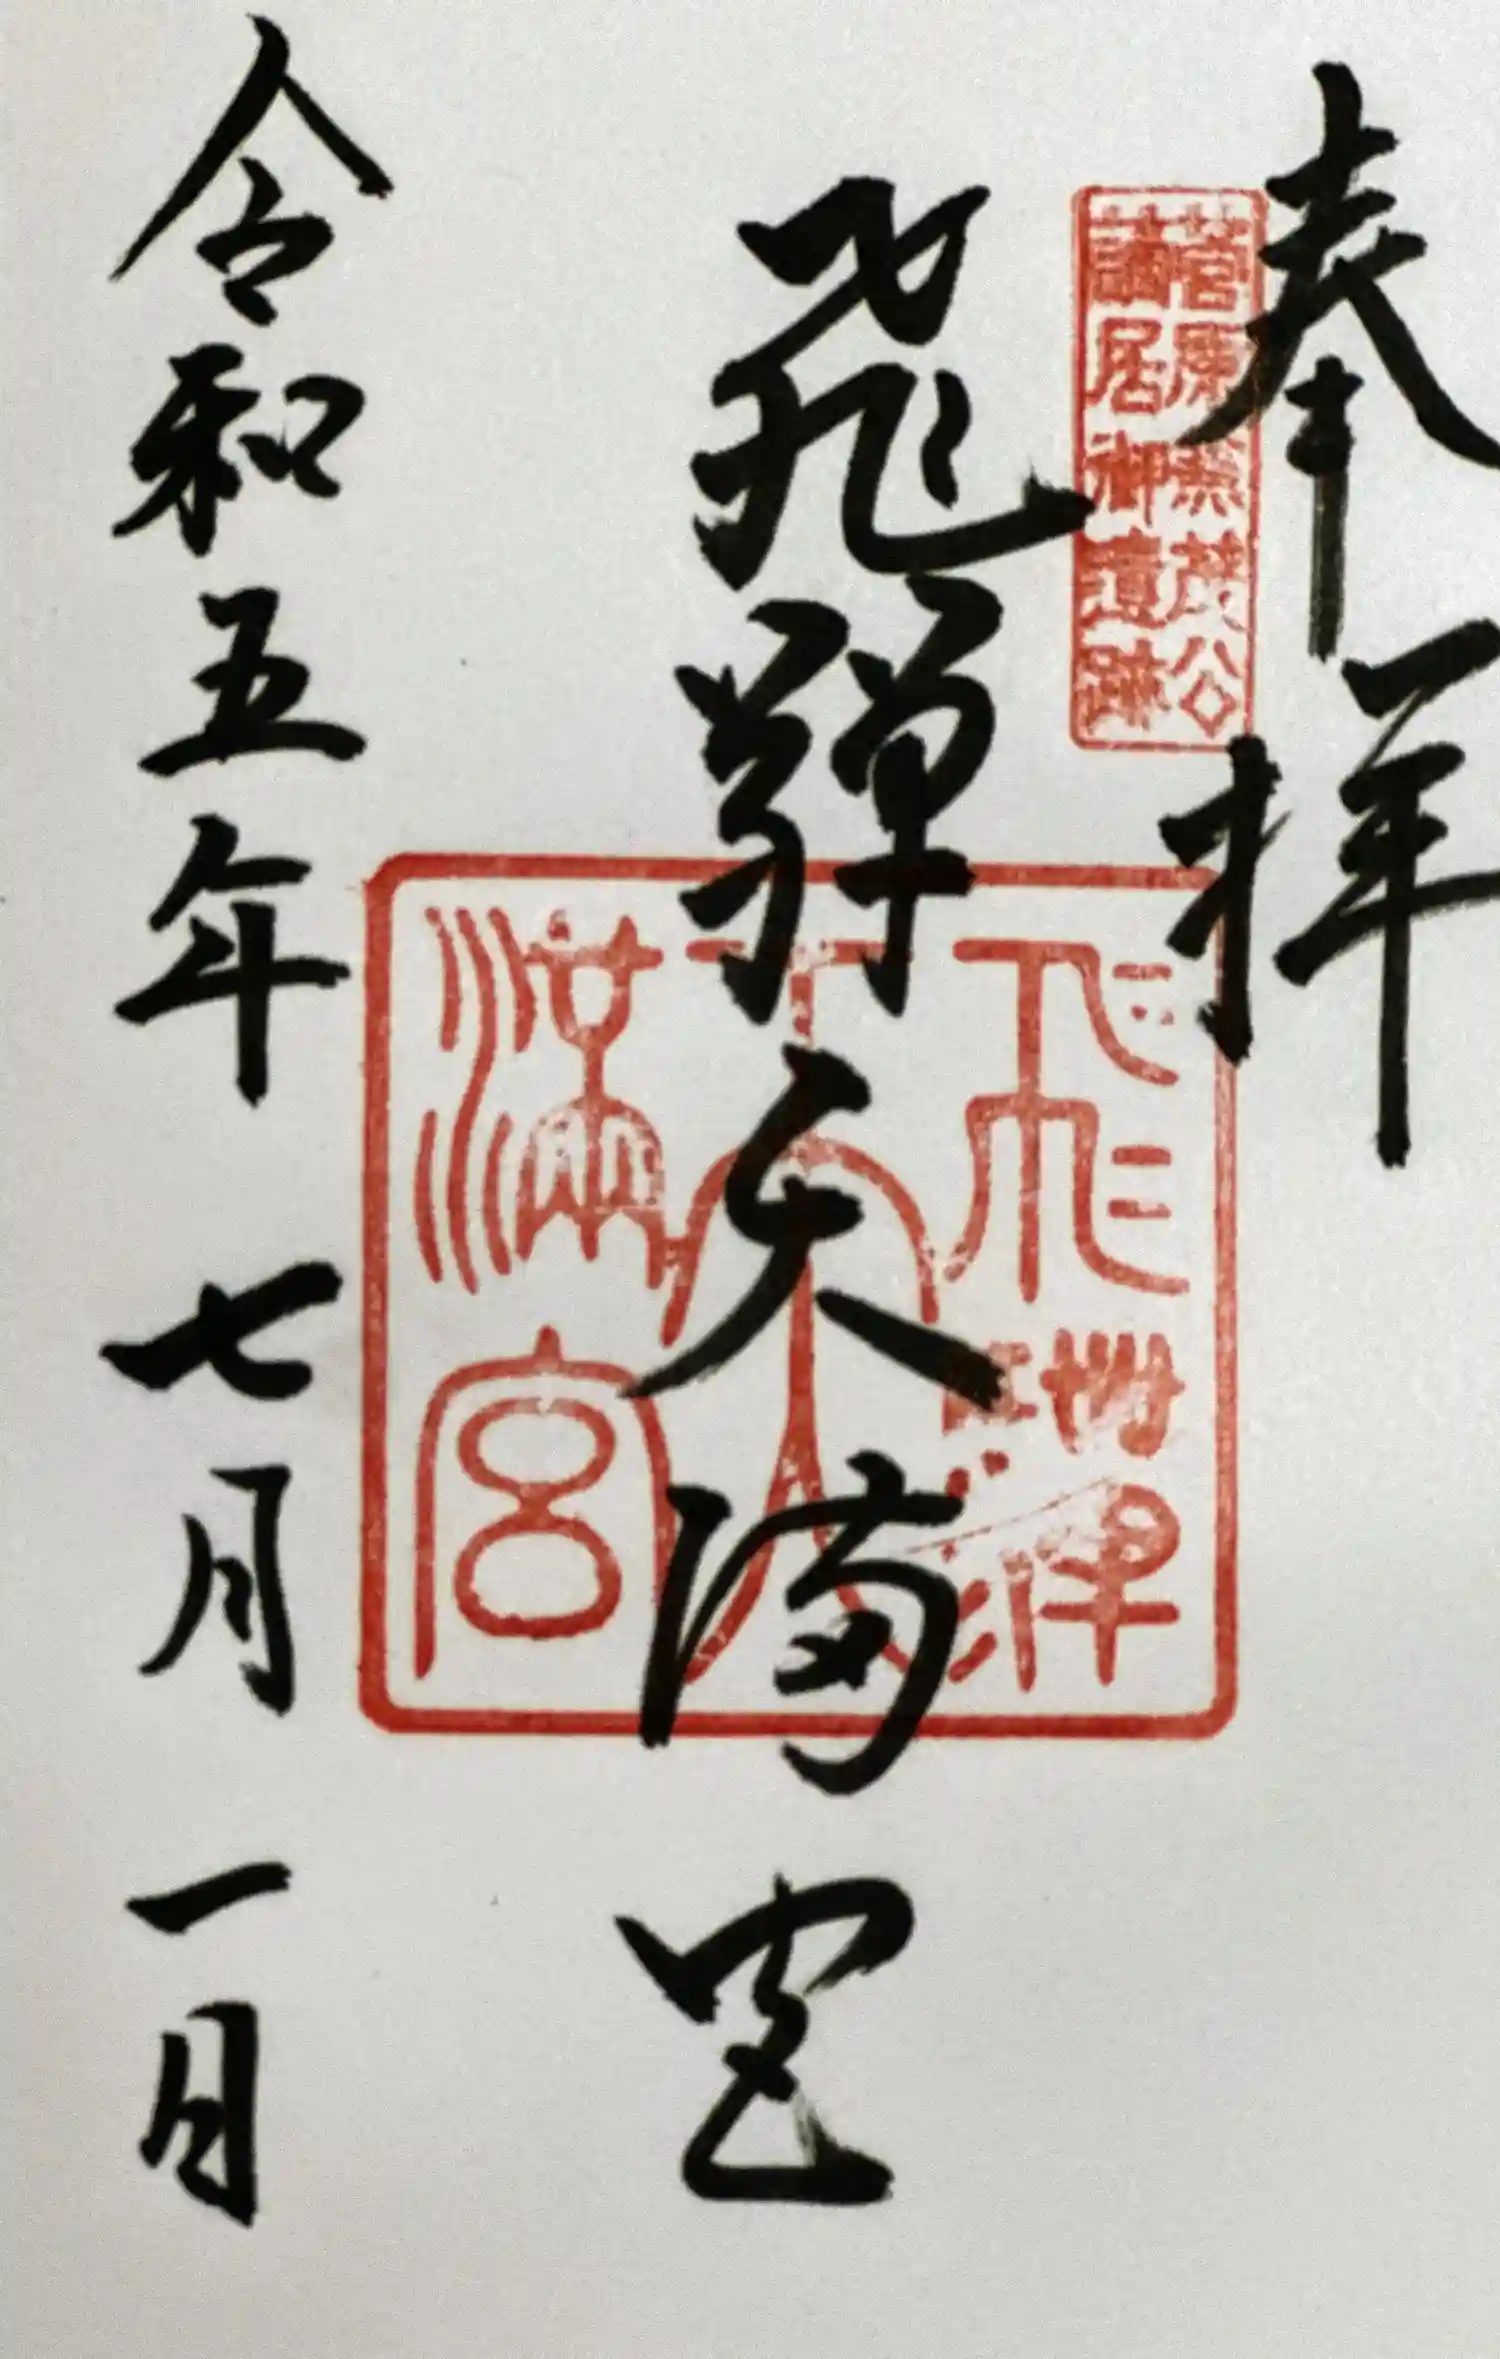 奉拝
菅原兼茂公
謫居御遺跡
飛騨天満宮
飛騨
天
満宮
令和五年七月一日